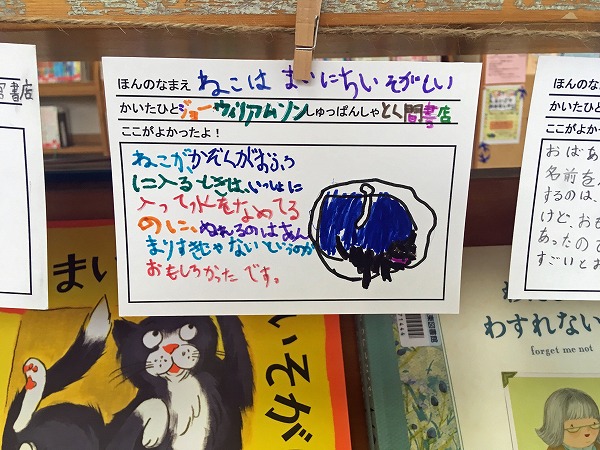 書店
ほんのなまえ ねこは まいにちいそがしい
かいたひと ジョーウィリアムソン しゅっぱんしゃ とく間書店
ここがよかったよ!
ねこが、かぞくがおふろ
に入るときは、いっしょに
入って水をなめてる
のに、ぬれるのはあん
まりすきじゃないというのが
おもしろかったです。
ほんのなま
かいたひと
ここがよかっ
おばあ
名前を
するのは、
けど、おも
あったので
すごいとお
まい
いそが
わすれない
forget me not